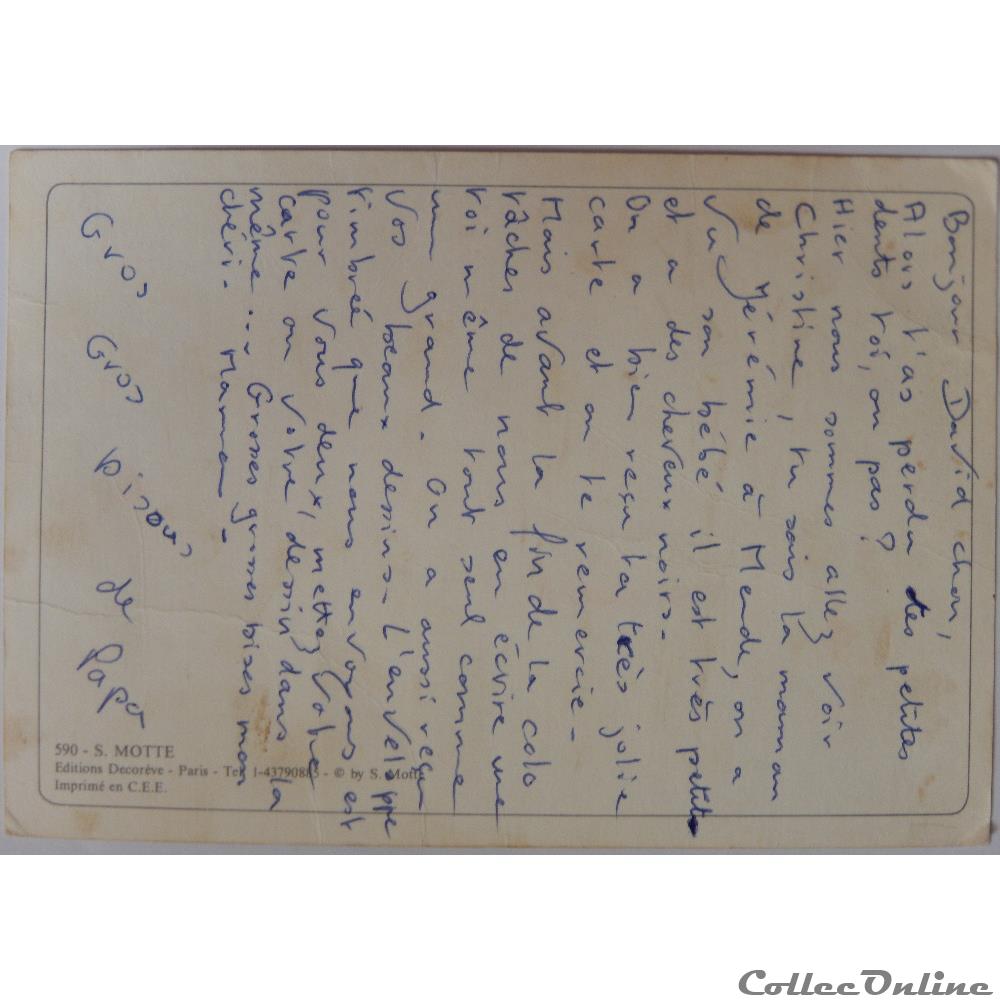 Bonjour David chou,
Alors t'as perdu des petites
dents toi, ou pas?
Hier nous sommes allez voir
Christine, tu sais la maman
de Jérémie à Mende, on a
vu son bébé il est très petit
et a des cheveux noirs.
On a bien reçu ta très jolie
carte et on te remercie -
Mais avant la fin de la colo
tâches de nous en écrire une
toi même tout seul comme
un grand. On a aussi reçu
vos beaux dessins. L'enveloppe
timbrée que nous envoyons est
pour vous deux, mettez votre
carte ou votre dessin dans la
même... Grosses grosses bises mon
chéri. Maman -
Gros Gros bisous de Papa
590 - S. MOTTE
Editions Decorève - Paris - Tel. 1-43790885 - © by S. Motte
Imprimé en C.E.E.
CollecOnline